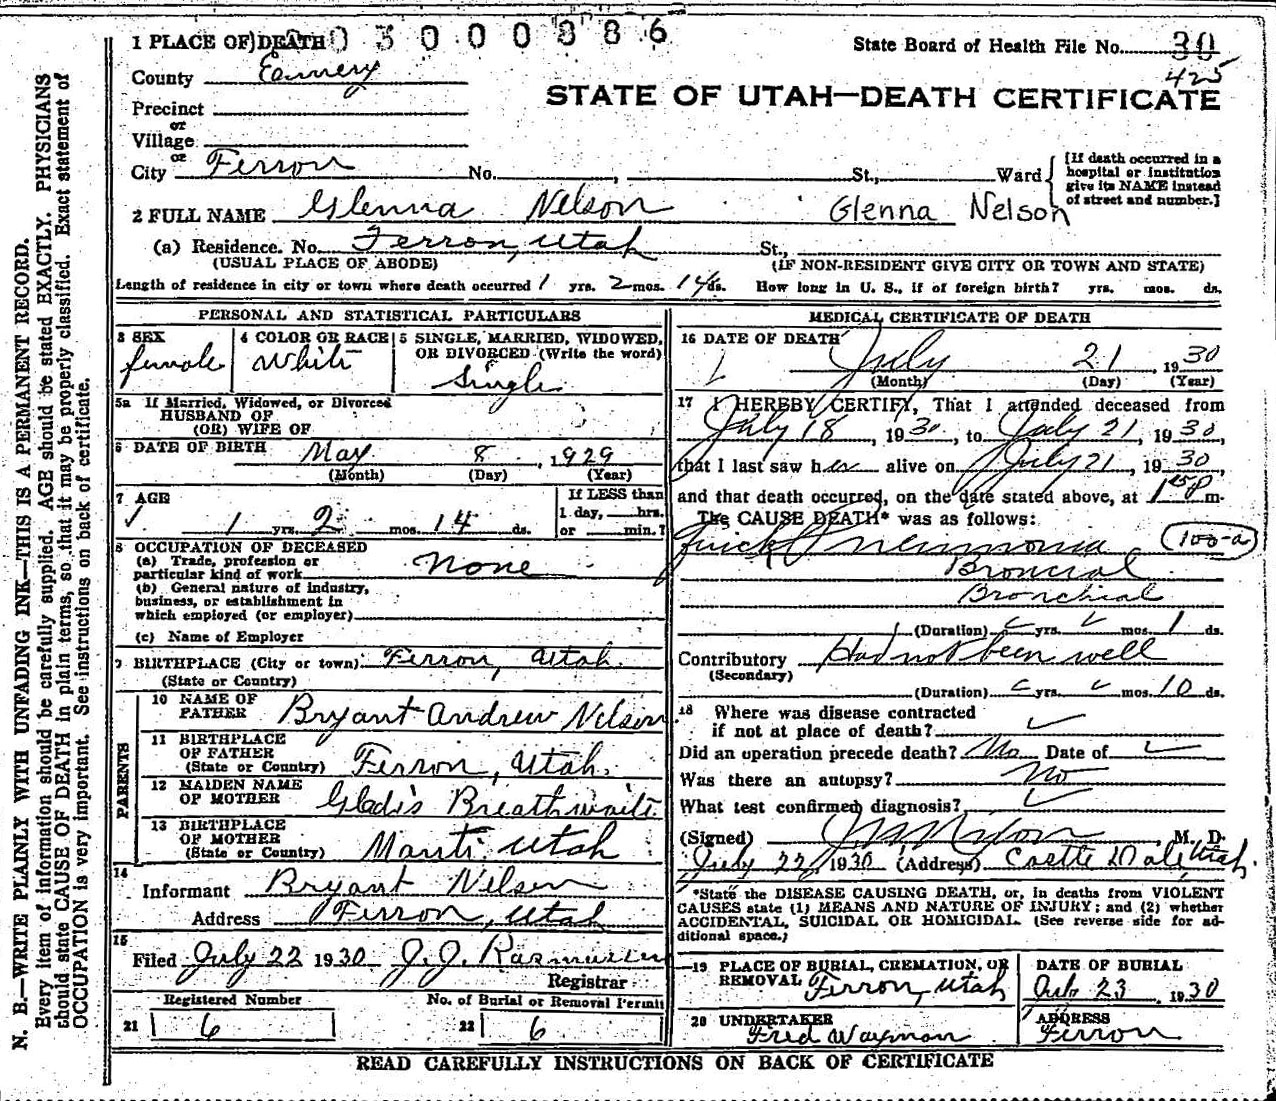 1 PLACE OF DEATH 03000886
State Board of Health File No. 30
425
County Emery
STATE OF UTAH—DEATH CERTIFICATE
Precinct
or
Village
or
City Ferron No. , St., Ward
[If death occurred in a hospital or institution give its NAME instead of street and number.]
2 FULL NAME Glenna Nelson Glenna Nelson
(a) Residence. No. Ferron, Utah St.,
(USUAL PLACE OF ABODE) (IF NON-RESIDENT GIVE CITY OR TOWN AND STATE)
Length of residence in city or town where death occurred 1 yrs. 2 mos. 14 ds. How long in U. S., if of foreign birth? yrs. mos. ds.
PERSONAL AND STATISTICAL PARTICULARS
3 SEX female
4 COLOR OR RACE White
5 SINGLE, MARRIED, WIDOWED, OR DIVORCED (Write the word)
Single
5a If Married, Widowed, or Divorced
HUSBAND OF
(OR) WIFE OF
6 DATE OF BIRTH May 8, 1929
(Month) (Day) (Year)
7 AGE
1 yrs. 2 mos. 14 ds.
If LESS than
1 day, hrs.
or min.?
8 OCCUPATION OF DECEASED
(a) Trade, profession or
particular kind of work None
(b) General nature of industry,
business, or establishment in
which employed (or employer)
(c) Name of Employer
9 BIRTHPLACE (City or town) Ferron, Utah.
(State or Country)
PARENTS
10 NAME OF FATHER Bryant Andrew Nelson
11 BIRTHPLACE OF FATHER (State or Country) Ferron, Utah.
12 MAIDEN NAME OF MOTHER Gladis Breathwaite
13 BIRTHPLACE OF MOTHER (State or Country) Manti Utah
14
Informant Bryant Nelson
Address Ferron, Utah
15
Filed July 22 1930 J. J. Rasmussen
Registrar
Registered Number No. of Burial or Removal Permit
21 6 22 6
MEDICAL CERTIFICATE OF DEATH
16 DATE OF DEATH July 21, 1930
(Month) (Day) (Year)
17 I HEREBY CERTIFY, That I attended deceased from
July 18, 1930, to July 21, 1930,
that I last saw her alive on July 21, 1930,
and that death occurred, on the date stated above, at m.
The CAUSE DEATH* was as follows:
Quick Pneumonia 100-a
Broncial
Bronchial
(Duration) yrs. mos. 1 ds.
Contributory Had not been well
(Secondary)
(Duration) yrs. mos. 10 ds.
18 Where was disease contracted
if not at place of death?
Did an operation precede death? No Date of
Was there an autopsy? No
What test confirmed diagnosis?
(Signed) M. D.
July 22, 1930 (Address) Castle Dale, Utah.
*State the DISEASE CAUSING DEATH, or, in deaths from VIOLENT
CAUSES state (1) MEANS AND NATURE OF INJURY; and (2) whether
ACCIDENTAL, SUICIDAL OR HOMICIDAL. (See reverse side for ad-
ditional space.)
19 PLACE OF BURIAL, CREMATION, OR REMOVAL Ferron, Utah
DATE OF BURIAL 23, 1930
20 UNDERTAKER Fred Wayman
ADDRESS Ferron
READ CAREFULLY INSTRUCTIONS ON BACK OF CERTIFICATE
N. B.—WRITE PLAINLY WITH UNFADING INK—THIS IS A PERMANENT RECORD.
Every item of information should be carefully supplied. AGE should be stated EXACTLY. PHYSICIANS
should state CAUSE OF DEATH in plain terms, so that it may be properly classified. Exact statement of
OCCUPATION is very important. See instructions on back of certificate.